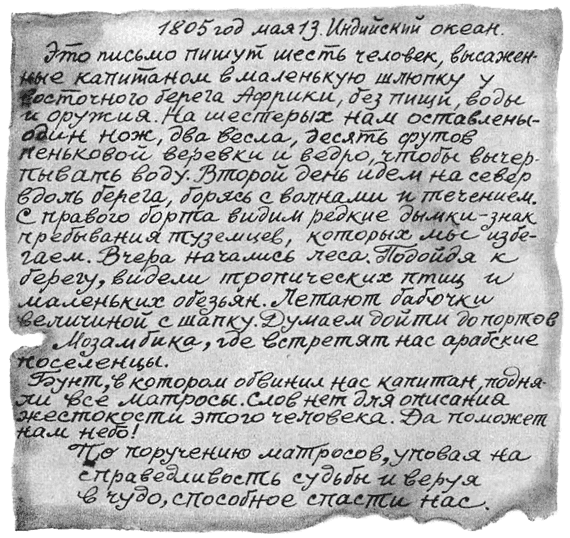 1805 год мая 13. Индийский океан.
Это письмо пишут шесть человек, высажен-
ные капитаном в маленькую шлюпку у
восточного берега Африки, без пищи, воды
и оружия. На шестерых нам оставлены-
один нож, два весла, десять футов
пеньковой веревки и ведро, чтобы вычер-
пывать воду. Второй день идем на север
вдоль берега, борясь с волнами и течением.
С правого борта видим редкие дымки-знак
пребывания туземцев, которых мы избе-
гаем. Вчера начались леса. Подойдя к
берегу, видели тропических птиц и
маленьких обезьян. Летают бабочки
величиной с шапку. Думаем дойти до портов
Мозамбика, где встретят нас арабские
поселенцы.
Бунт, в котором обвинил нас капитан, подня-
ли все матросы. Слов нет для описания
жестокости этого человека. Да поможет
нам небо!
По поручению матросов, уповая на
справедливость судьбы и веруя
в чудо, способное спасти нас.